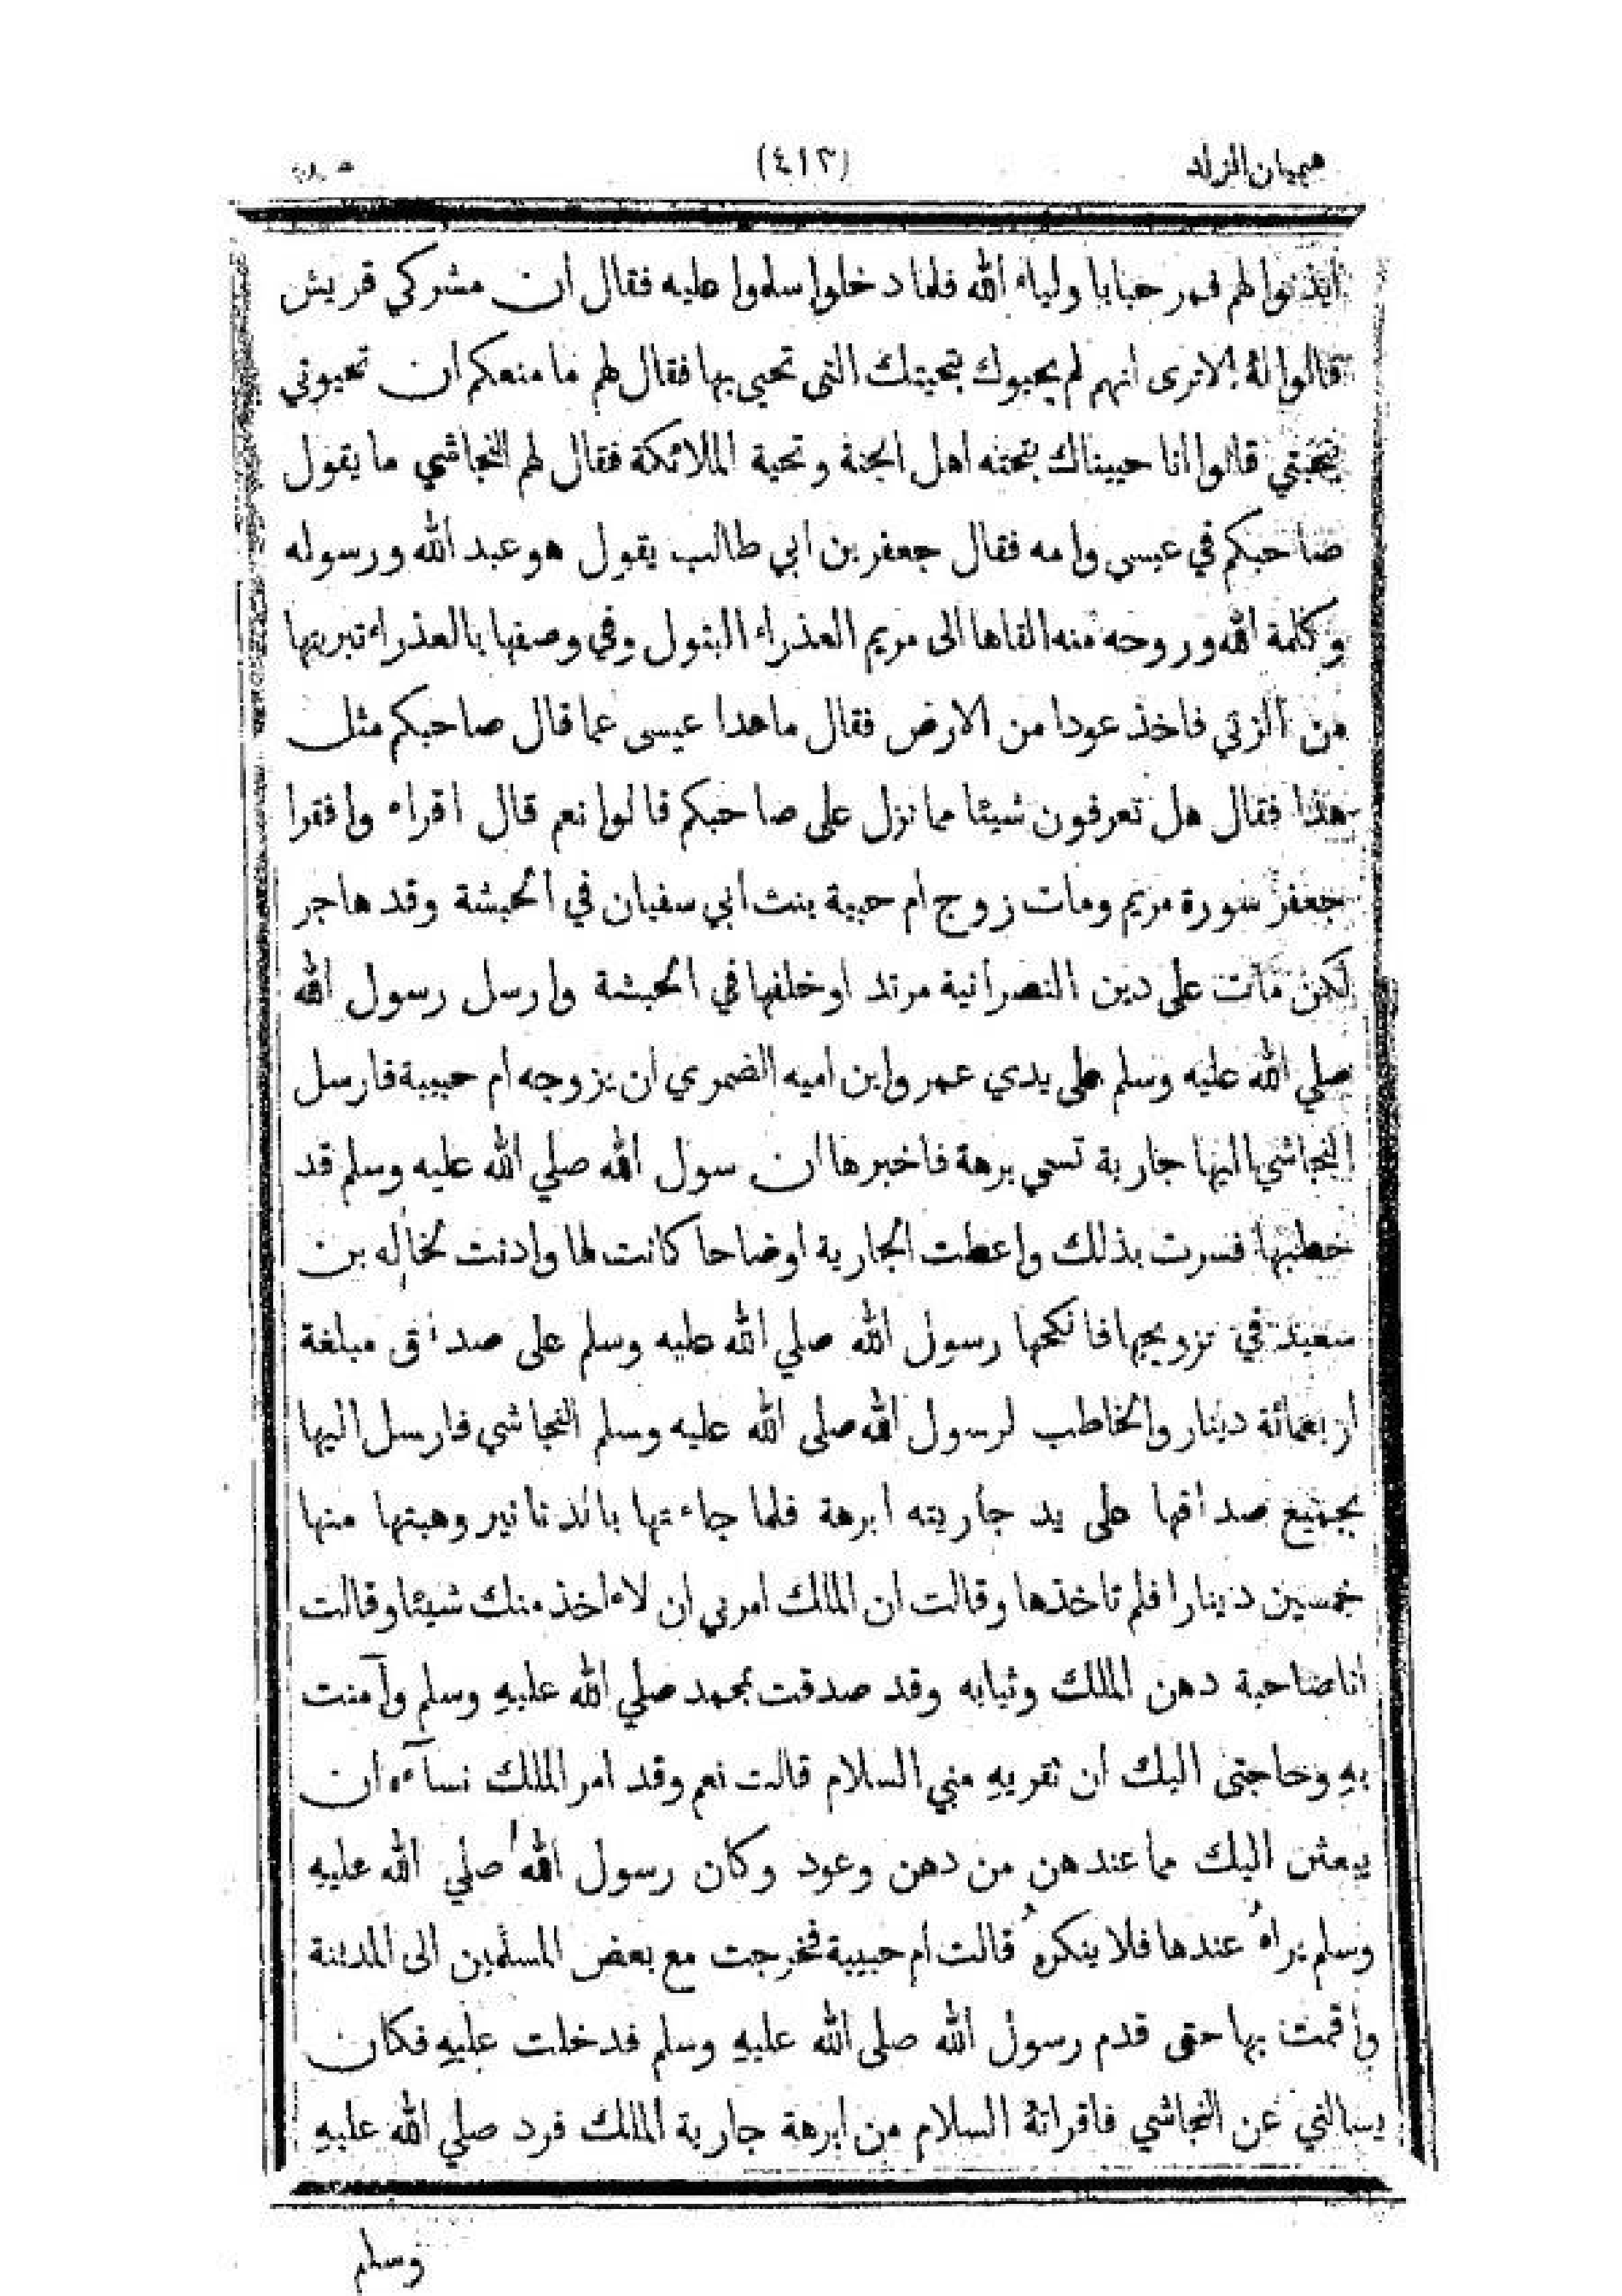 هميان الزاد (٤١٢)
أيذنوا لهم فمر حبابا ولياء الله فلما دخلوا سلموا عليه فقال ان مشركي قريش
قالوا له الا ترى انهم لم يحيوك بتحيتك التى تحيى بها فقال لهم ما منعكم ان تحيوني
بتحيتي قالوا انا حييناك بتحته اهل الجنة وتحية الملائكة فقال لهم النجاشي ما يقول
صاحبكم في عيسى وامه فقال جعفر بن ابي طالب يقول هو عبد الله ورسوله
وكلمة الله وروحه منه القاها الى مريم العذراء البتول وفي وصفها بالعذراء تبريتها
من الزنى فاخذ عودا من الارض فقال ما هدا عيسى عما قال صاحبكم مثل
هذا فقال هل تعرفون شيئا مما نزل على صاحبكم قالوا نعم قال اقراء وافقرا
جعفر سورة مريم ومات زوج ام حبية بنت ابي سفيان في الحبشة وقد هاجر
لكن مات على دين النصرانية مرتد اوخلفها في الحبشة وارسل رسول الله
صلي الله عليه وسلم على يدي عمر وابن اميه الضمري ان يزوجه ام حبيبة فارسل
النجاشي اليها جارية تسمي برهة فاخبرها ان سول الله صلي الله عليه وسلم قد
خطبها فسرت بذلك واعطت الجارية اوضاحا كانت لها وادنت لخاله بن
سعيد في تزويجها فانكحها رسول الله صلي الله عليه وسلم على صداق مبلغة
اربعمائة دينار والخاطب لرسول الله صلى الله عليه وسلم النجاشي فارسل اليها
بجميع صداقها على يد جاريته ابرهة فلما جاءتها بالدنانير وهبتها منها
خمسين دينارا فلم تاخذها وقالت ان الملك امرني ان لاءاخذ منك شيئا وقالت
انا صاحبة دهن الملك وثيابه وقد صدقت بمحمد صلي الله عليهِ وسلم وآمنت
بهِ وحاجتى اليك ان تقريهِ مني السلام قالت نعم وقد امر الملك نسآءه ان
يبعثن اليك مما عندهن من دهن وعود وكان رسول الله صلي الله عليهِ
وسلم يراهُ عندها فلا ينكرهُ قالت ام حبيبة فخرجت مع بعض المسلمين الى المدينة
واقمت بها حتى قدم رسول الله صلى الله عليهِ وسلم فدخلت عليهِ فكان
يسالني عن النجاشي فاقراتهُ السلام من ابرهة جارية الملك فرد صلي الله عليهِ
وسلم